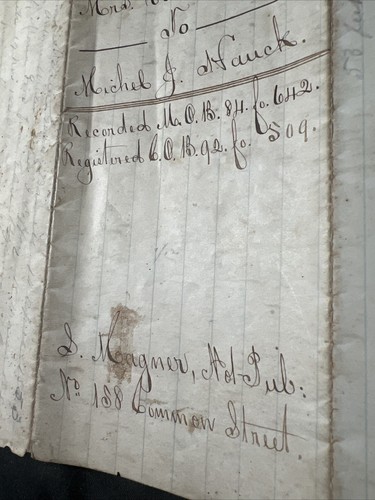 Mrs.
To
Michel J. Hauck.
Recorded M.O.B. 84. fo. 642.
Registered C.O.B. 92. fo. 509.
S. Magner, Not. Pub:
No 158 Common Street.